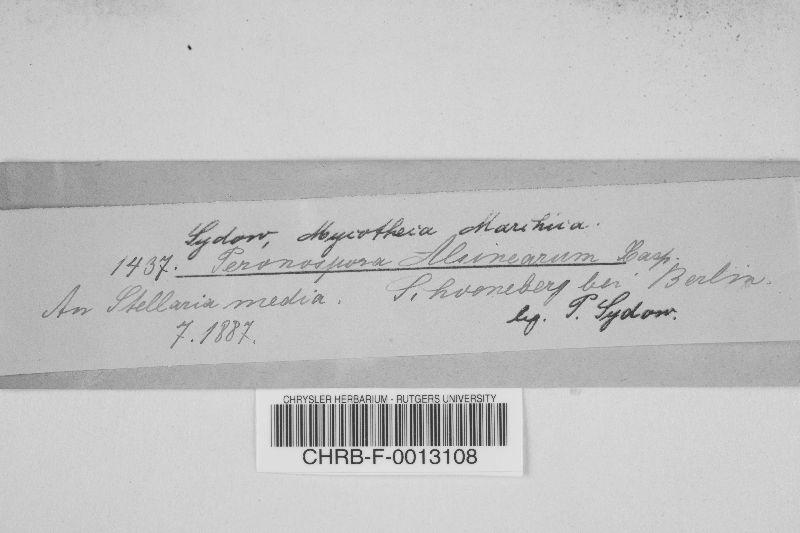 Sydow, Mycotheca Marchica.
1437. Peronospora Alsinearum Casp.
An Stellaria media. Schöneberg bei Berlin.
7. 1887. leg. P. Sydow.
CHRYSLER HERBARIUM - RUTGERS UNIVERSITY
CHRB-F-0013108